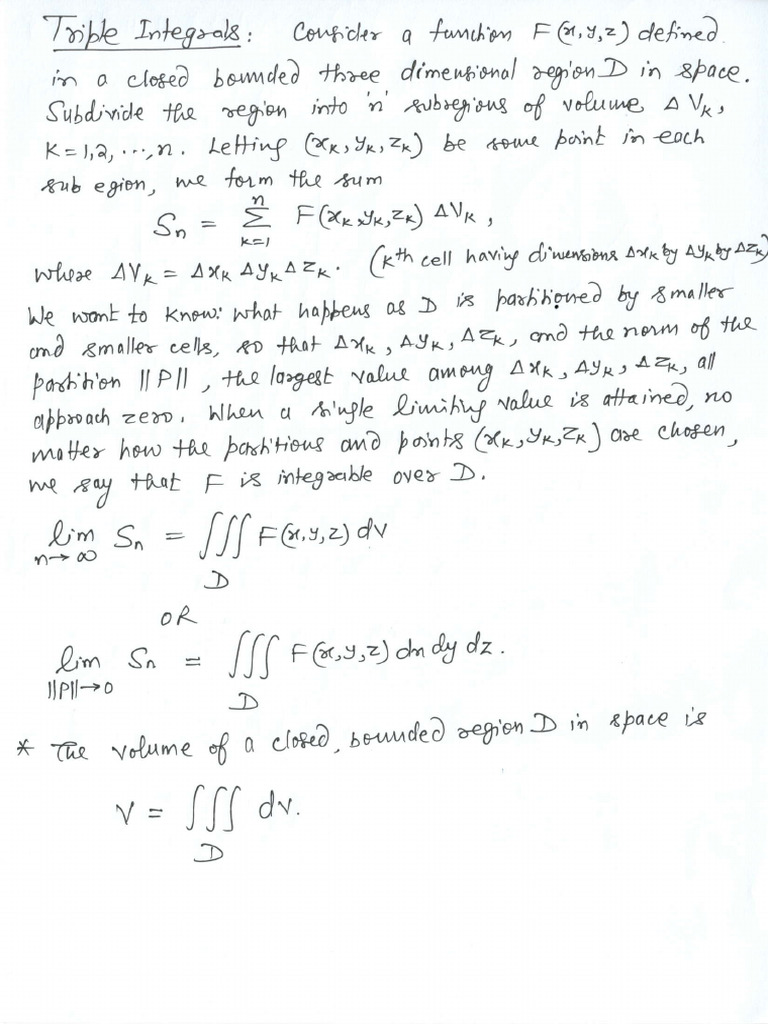 Triple Integrals: Consider a function F(x,y,z) defined
in a closed bounded three dimensional region D in space.
Subdivide the region into 'n' subregions of volume ΔVk,
K=1,2,...,n. Letting (xk, yk, zk) be some point in each
sub egion, we form the sum
Sn = Σ_{k=1}^{n} F(xk,yk,zk) ΔVk,
where ΔVk = Δxk Δyk Δzk. (kth cell having dimensions Δxk by Δyk by Δzk)
We want to know: what happens as D is partitioned by smaller
and smaller cells, so that Δxk, Δyk, Δzk, and the norm of the
partition ||P||, the largest value among Δxk, Δyk, Δzk, all
approach zero. When a single limiting value is attained, no
matter how the partitions and points (xk, yk, zk) are chosen,
we say that F is integrable over D.
lim_{n→∞} Sn = ∭_D F(x,y,z) dv
OR
lim_{||P||→0} Sn = ∭_D F(x,y,z) dx dy dz.
* The volume of a closed, bounded region D in space is
V = ∭_D dv.